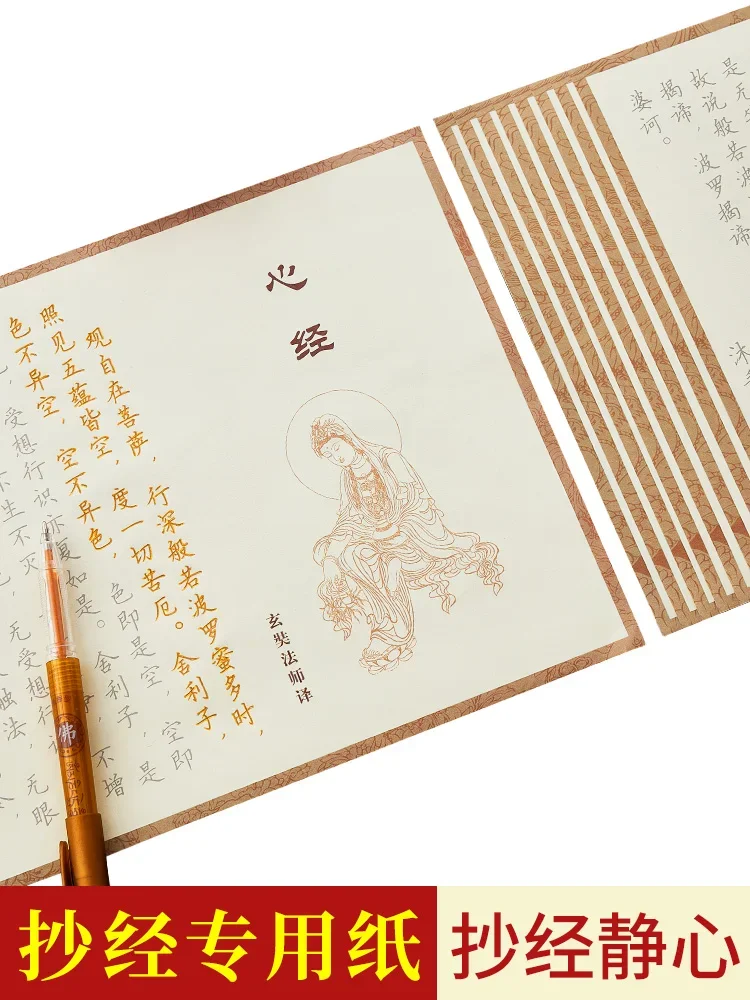 是无
故说般若波
揭谛，波罗揭谛
婆诃。
沐
心经
玄奘法师译
观自在菩萨，行深般若波罗蜜多时，
照见五蕴皆空，度一切苦厄。舍利子，
色不异空，空不异色，色即是空，空即
受想行识亦复如是。舍利子，是
不生不灭，
不增
无受想行，
无眼
触法，
佛
抄经专用纸
抄经静心